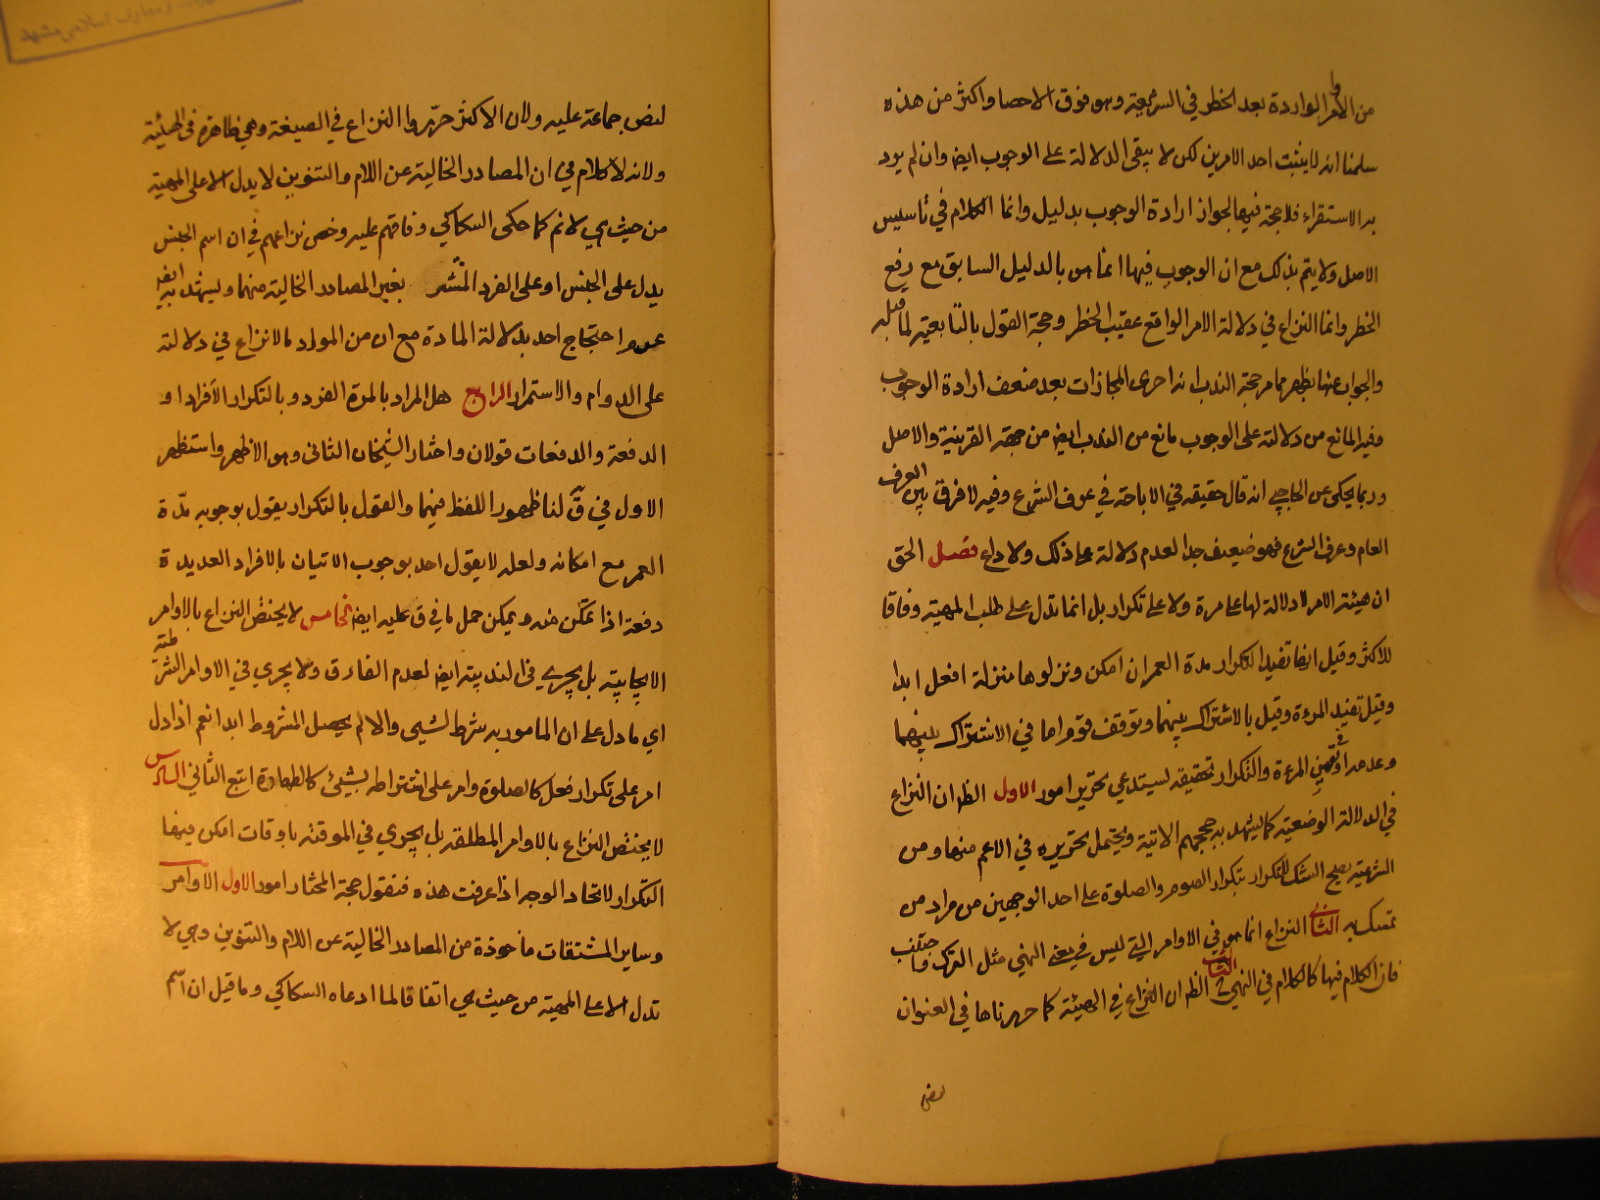 من الاوامر الواردة بعد الحظر في الشريعة وهو فوق الاحصا واكثر من هذه
سلمنا انه لا يثبت احد الامرين لكن لا يبقى الدلالة على الوجوب ايض وان لم يرد
به الاستقراء فلا حجة فيها لجواز ارادة الوجوب بدليل وانما الكلام في تاسيس
الاصل ولا يتم بذلك مع ان الوجوب فيها انما هو بالدليل السابق مع رفع
الحظر وانما النزاع في دلالة الامر الواقع عقيب الحظر وحجة القول بالتابعية لما قبله
والجواب عنها يظهر مما مر حجة الندب انه احرى المجازات بعد ضعف ارادة الوجوب
وفيه المانع من دلالته على الوجوب مانع من الندب ايض من جهة القرينة والاصل
وربما يحكى عن الحاجبي انه قال حقيقه في الاباحة في عرف الشرع وفيه لا فرق بين العرف
العام وعرف الشرع فهو ضعيف جدا لعدم دلالة على ذلك ولا داع فصل الحق
ان هيئة الامر لا دلالة لها على مرة ولا على تكرار بل انما تدل على طلب المهية وفاقا
للاكثر وقيل انها تفيد التكرار مدة العمر ان امكن ونزلوها منزلة افعل ابدا
وقيل تفيد المرءة وقيل بالاشتراك بينهما وتوقف قوم اما في الاشتراك بينهما
وعدمه او في تعيين المرءة والتكرار تحقيقه يستدعي تحرير امور الاول الظ ان النزاع
في الدلالة الوضعية كما يشهد به حججهم الاتية ويحتمل تحريره في الاعم منها ومن
الشرعية يصلح التمسك للتكرار بتكرار الصوم والصلوة على احد الوجهين من مراد من
تمسك به الثاني النزاع انما هو في الاوامر التي ليس في معنى النهي مثل اترك واجتنب
فان الكلام فيها كالكلام في النهي الثالث الظ ان النزاع في الهيئة كما حررناها في العنوان
لنص
لنص جماعة عليه ولان الاكثر حرروا النزاع في الصيغة وهي ظاهرة في الهيئة
ولانه لا كلام في ان المصادر الخالية عن اللام والتنوين لا يدل الا على المهية
من حيث هي لانم كما حكى السكاكي وفاقهم عليه وخص نزاعهم في ان اسم الجنس
يدل على الجنس او على الفرد المنتشر بغير المصادر الخالية منهما ويشهد به ايض
عدم احتجاج احد بدلالة المادة مع ان من المواد ما لا نزاع في دلالته
على الدوام والاستمرار الرابع هل المراد بالمرة الفرد وبالتكرار الافراد او
الدفعة والدفعات قولان واختار الشيخان الثاني وهو الاظهر واستظهر
الاول في ق لنا ظهور اللفظ فيهما والقول بالتكرار يقول بوجوبه مدة
العمر مع امكانه ولعله لا يقول احد بوجوب الاتيان بالافراد العديدة
دفعة اذا تمكن منه ويمكن حمل ما في ق عليه ايض الخامس لا يختص النزاع بالاوامر
الايجابية بل يجري في الندبية ايض لعدم الفارق ولا يجري في الاوامر الشرطية
اي ما دل على ان المامور به شرط لشيء والا لم يحصل المشروط ابدا نعم اذا دل
امر على تكرار فعل كالصلوة وامر على اشتراطه بشيئ كالطهارة اتبع الثاني السادس
لا يختص النزاع بالاوامر المطلقه بل يجري في الموقتة باوقات امكن فيها
التكرار لاتحاد الوجه اذا عرفت هذه فنقول حجة المختار امور الاول الاوامر
وساير المشتقات ماخوذة من المصادر الخالية عن اللام والتنوين وهي لا
تدل الا على المهية من حيث هي اتفاقا لما ادعاه السكاكي وما قيل ان اسم